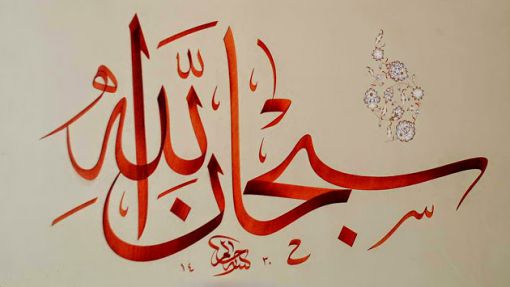 سبحان الله
١٤ ٢٠